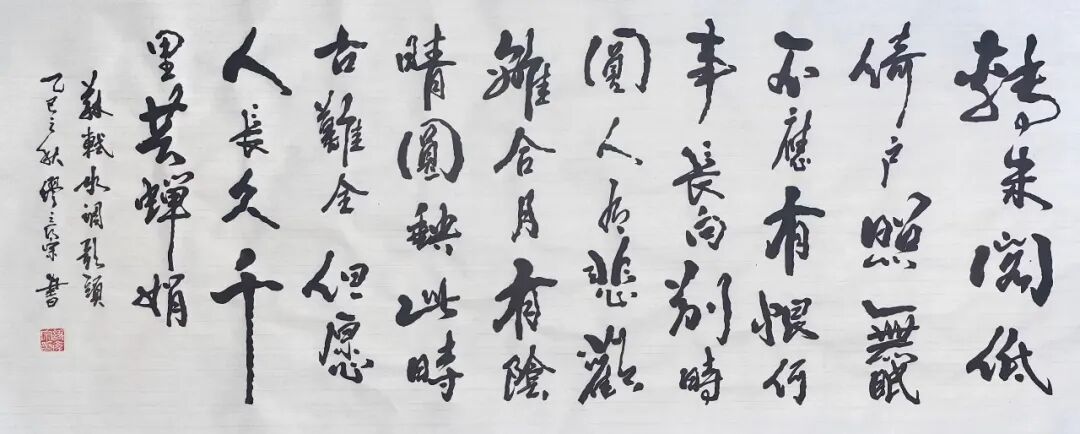 轉朱閣低
倚户照無眠
不應有恨何
事長向別時
圓人有悲歡
離合月有陰
晴圓缺此時
古難全但愿
人長久千
里共蟬娟
蘇軾水調歌頭
乙巳之秋書